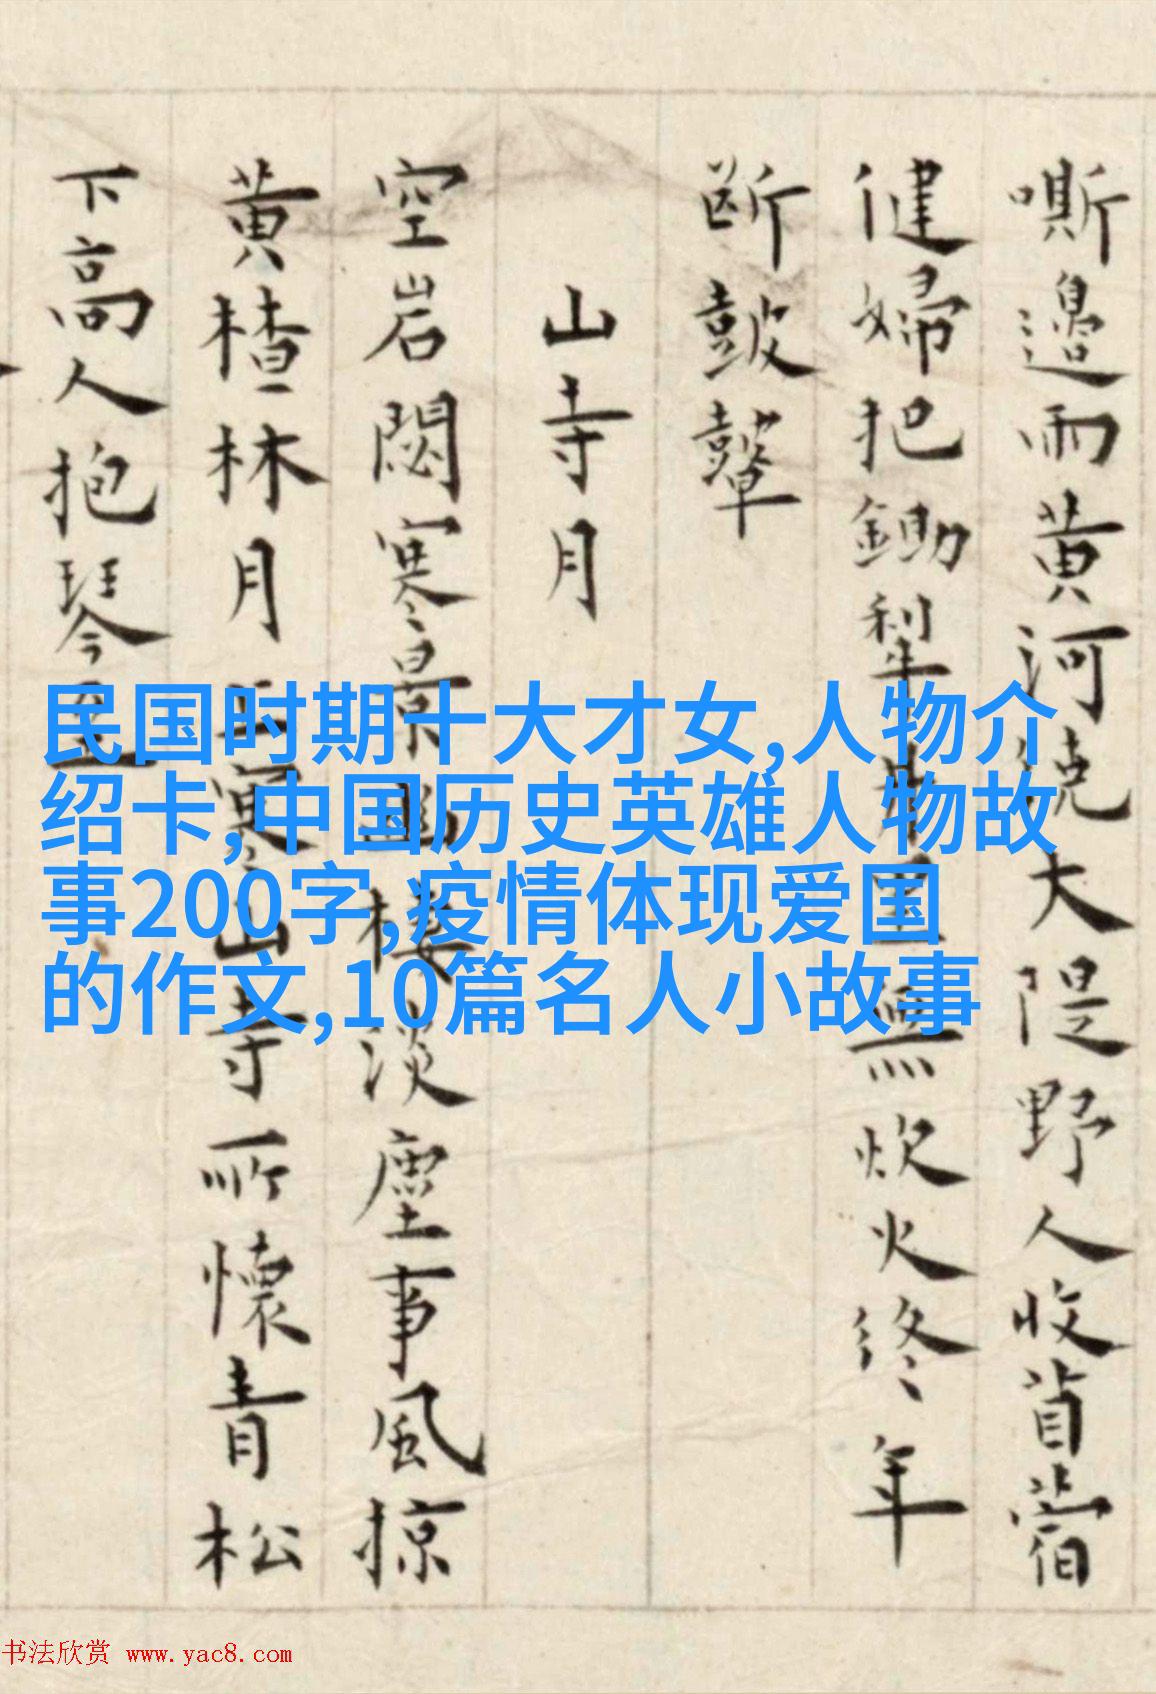 嘶邊雨黄河大隄野人收苜蓿
健婦把鋤犁無炊火終年
断皷鼙
山寺月
空岩閟寒景樓淡塵事風掠
黄楂林月上寒山寺所懷青松
下高人抱琴至
民国时期十大才女,人物介
绍卡,中国历史英雄人物故
事200字,疫情体现爱国
的作文,10篇名人小故事
书法欣赏 www.yac8.com